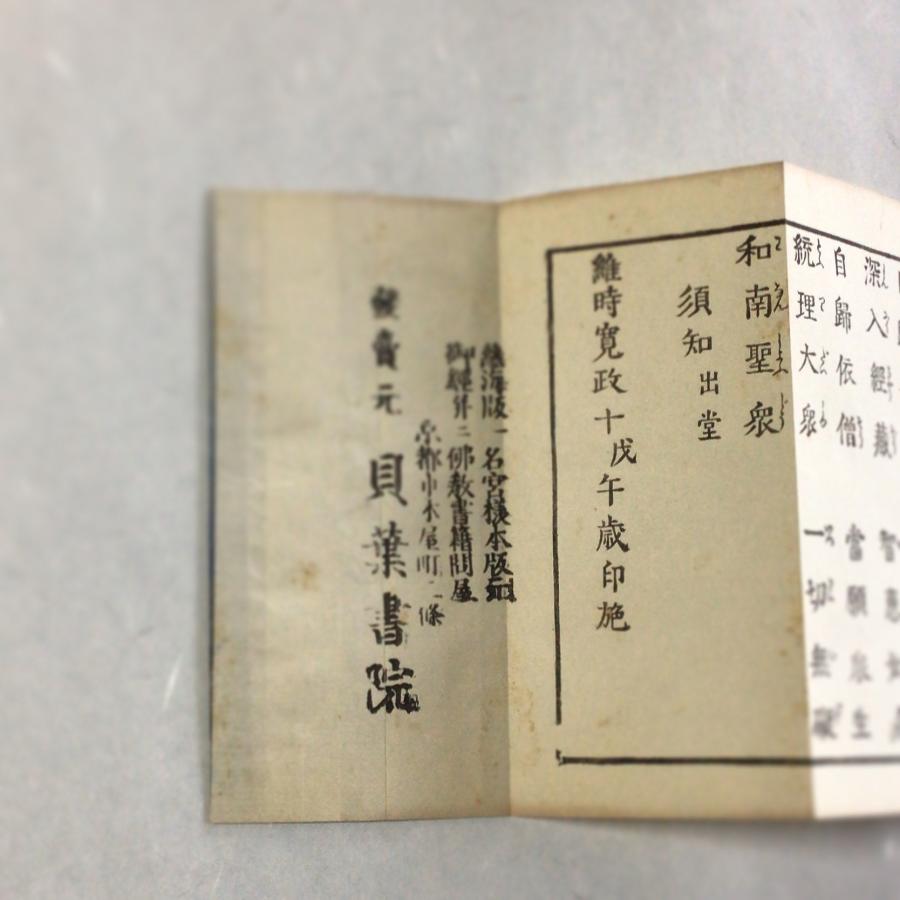 深入經藏 智慧如
自歸依僧 當願衆生
統理大衆 一切無礙
和南聖衆
須知出堂
維時寛政十戊午歳印施
名宮様本版元
御經弁ニ佛教書籍問屋
京都市木屋町二條
發賣元 貝葉書院